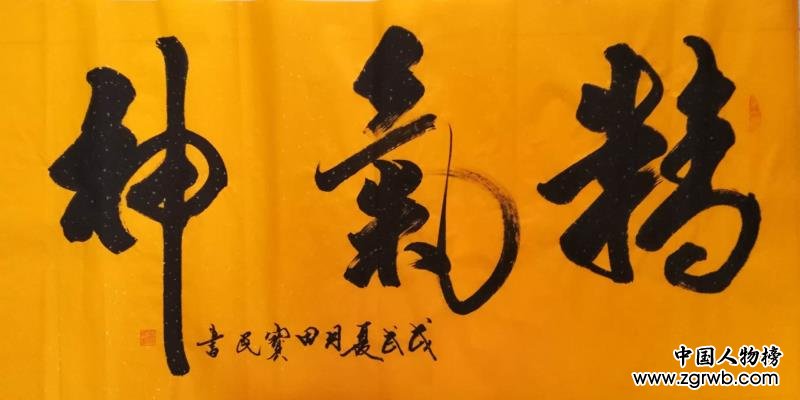 精氣神
戊戌夏月田寶民書
中国人物榜
www.zgrwb.com